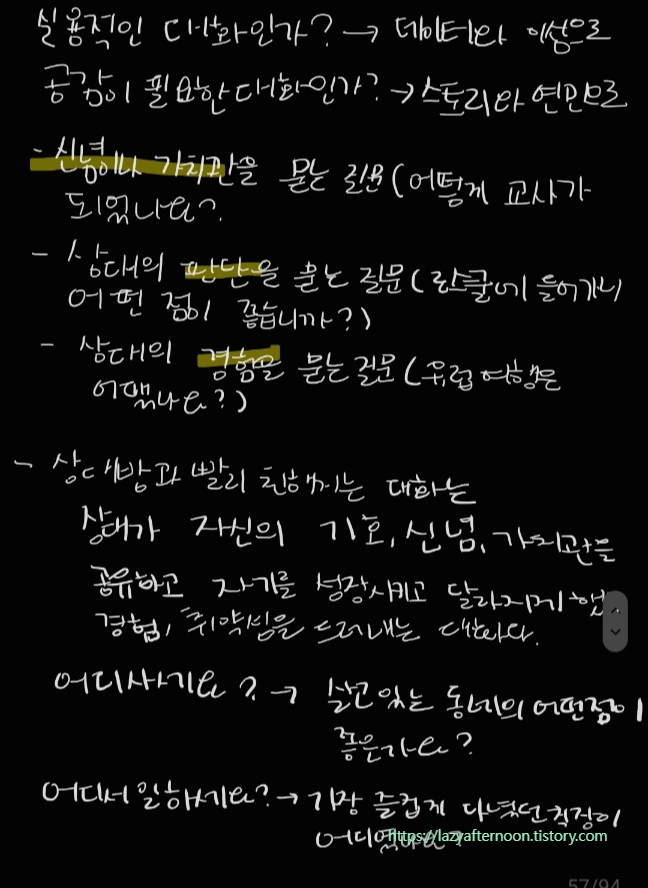 실용적인 대화인가? → 데이터와 이성으로
공감이 필요한 대화인가? → 스토리와 연민으로
- 신념이나 가치관을 묻는 질문 (어떻게 교사가
되었나요?
- 상대의 판단을 묻는 질문 (로스쿨에 들어가니
어떤 점이 좋습니까?)
- 상대의 경험을 묻는 질문 (유럽 여행은
어땠나요?)
- 상대방과 빨리 친해지는 대화는
상대가 자신의 기호, 신념, 가치관을
공유하고 자기를 성장시키고 달라지게 했
경험, 취약성을 드러내는 대화다.
어디사시나요? → 살고 있는 동네의 어떤점이
좋은가요?
어디서 일하세요? → 가장 즐겁게 다녔던 직장이
어디였나요?
https://lazyafternoon.tistory.com
57/94